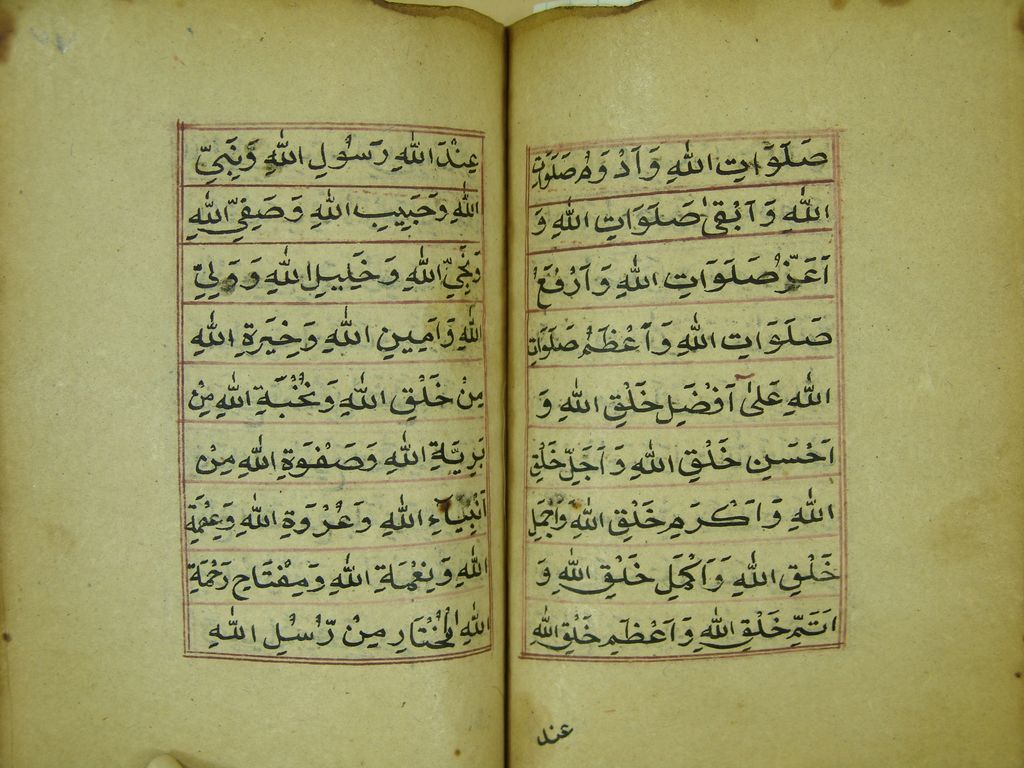 صَلَوَاتِ اللّٰهِ وَاَدْوَمُ صَلَوَاتِ
اللّٰهِ وَاَبْقٰى صَلَوَاتِ اللّٰهِ وَ
اَعَزُّ صَلَوَاتِ اللّٰهِ وَاَرْفَعُ
صَلَوَاتِ اللّٰهِ وَاَعْظَمُ صَلَوَاتِ
اللّٰهِ عَلٰى اَفْضَلِ خَلْقِ اللّٰهِ وَ
اَحْسَنِ خَلْقِ اللّٰهِ وَاَجَلِّ خَلْقِ
اللّٰهِ وَاَكْرَمِ خَلْقِ اللّٰهِ وَاَجْمَلِ
خَلْقِ اللّٰهِ وَاَكْمَلِ خَلْقِ اللّٰهِ وَ
اَتَمِّ خَلْقِ اللّٰهِ وَاَعْظَمِ خَلْقِ اللّٰهِ
عند
عِنْدَ اللّٰهِ رَسُولِ اللّٰهِ وَنَبِيِّ
اللّٰهِ وَحَبِيبِ اللّٰهِ وَصَفِيِّ اللّٰهِ
وَنَجِيِّ اللّٰهِ وَخَلِيلِ اللّٰهِ وَوَلِيِّ
اللّٰهِ وَاَمِينِ اللّٰهِ وَخِيَرَةِ اللّٰهِ
مِنْ خَلْقِ اللّٰهِ وَنُخْبَةِ اللّٰهِ مِنْ
بَرِيَّةِ اللّٰهِ وَصَفْوَةِ اللّٰهِ مِنْ
اَنْبِيَآءِ اللّٰهِ وَعُرْوَةِ اللّٰهِ وَعِصْمَةِ
اللّٰهِ وَنِعْمَةِ اللّٰهِ وَمِفْتَاحِ رَحْمَةِ
اللّٰهِ الْمُخْتَارِ مِنْ رُّسُلِ اللّٰهِ